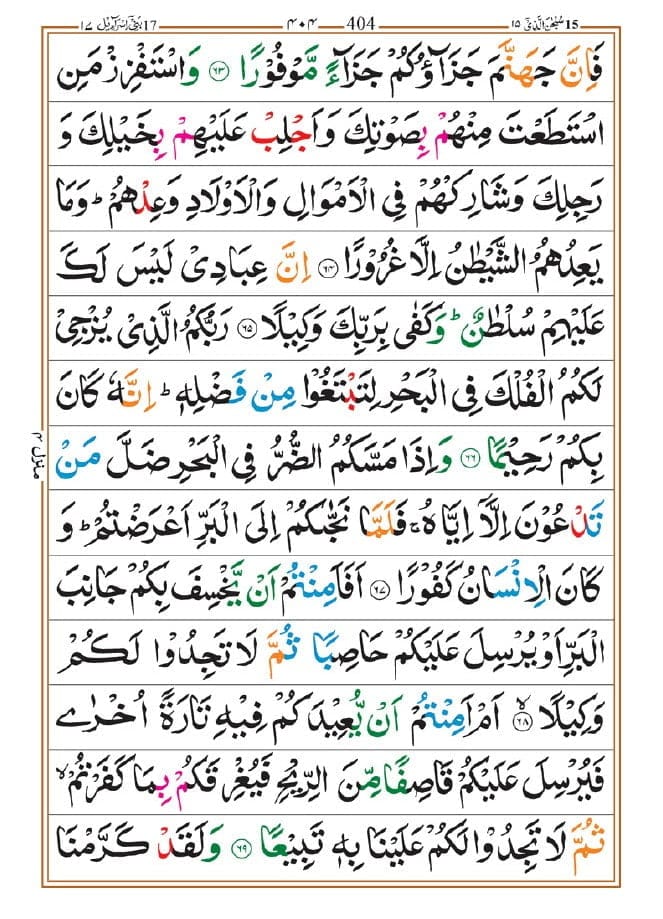 سُبْحٰنَ الَّذِیْۤ ١٥ 15
٤٠٤ 404
17 بَنِیْۤ اِسْرَآءِیْل ١٧
فَاِنَّ جَهَنَّمَ جَزَآؤُكُمْ جَزَآءً مَّوْفُوْرًا ﴿٦٣﴾ وَاسْتَفْزِزْ مَنِ
اسْتَطَعْتَ مِنْهُمْ بِصَوْتِكَ وَاَجْلِبْ عَلَيْهِمْ بِخَيْلِكَ وَ
رَجِلِكَ وَشَارِكْهُمْ فِى الْاَمْوَالِ وَالْاَوْلَادِ وَعِدْهُمْ ؕ وَمَا
يَعِدُهُمُ الشَّيْطٰنُ اِلَّا غُرُوْرًا ﴿٦٤﴾ اِنَّ عِبَادِىْ لَيْسَ لَكَ
عَلَيْهِمْ سُلْطٰنٌ ؕ وَكَفٰى بِرَبِّكَ وَكِيْلًا ﴿٦٥﴾ رَبُّكُمُ الَّذِىْ يُزْجِىْ
لَكُمُ الْفُلْكَ فِى الْبَحْرِ لِتَبْتَغُوْا مِنْ فَضْلِهٖ ؕ اِنَّهٗ كَانَ
بِكُمْ رَحِيْمًا ﴿٦٦﴾ وَاِذَا مَسَّكُمُ الضُّرُّ فِى الْبَحْرِ ضَلَّ مَنْ
تَدْعُوْنَ اِلَّاۤ اِيَّاهُ ۚ فَلَمَّا نَجّٰٮكُمْ اِلَى الْبَرِّ اَعْرَضْتُمْ ؕ وَ
كَانَ الْاِنْسَانُ كَفُوْرًا ﴿٦٧﴾ اَفَاَمِنْتُمْ اَنْ يَّخْسِفَ بِكُمْ جَانِبَ
الْبَرِّ اَوْ يُرْسِلَ عَلَيْكُمْ حَاصِبًا ثُمَّ لَا تَجِدُوْا لَكُمْ
وَكِيْلًا ۙ﴿٦٨﴾ اَمْ اَمِنْتُمْ اَنْ يُّعِيْدَكُمْ فِيْهِ تَارَةً اُخْرٰى
فَيُرْسِلَ عَلَيْكُمْ قَاصِفًا مِّنَ الرِّيْحِ فَيُغْرِقَكُمْ بِمَا كَفَرْتُمْ ۙ
ثُمَّ لَا تَجِدُوْا لَكُمْ عَلَيْنَا بِهٖ تَبِيْعًا ﴿٦٩﴾ وَلَقَدْ كَرَّمْنَا
منزل ٤